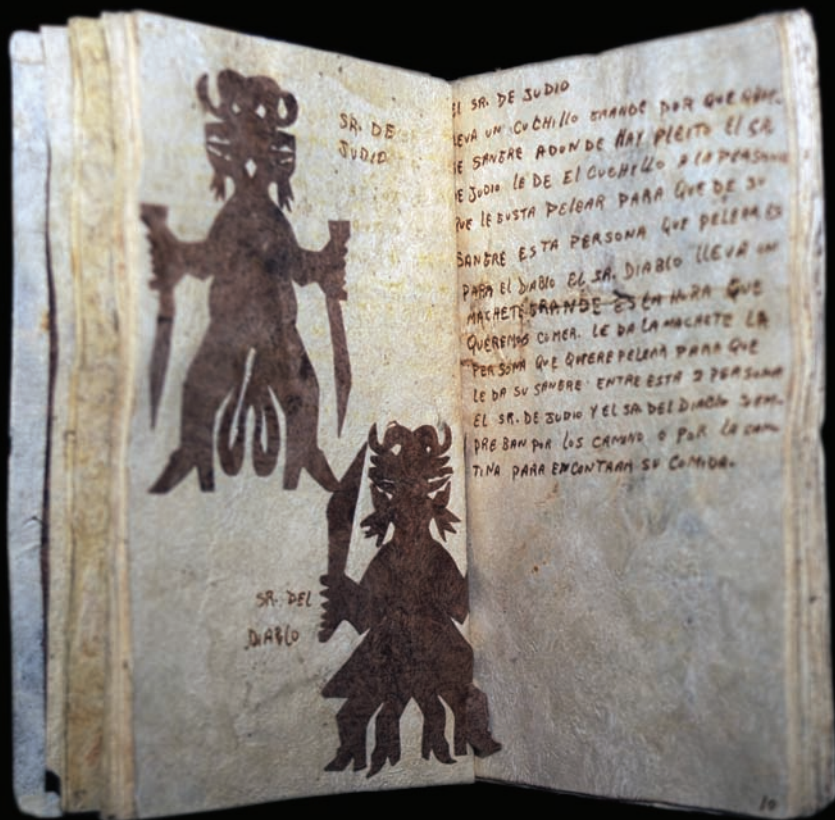 SR. DE
JUDIO
SR. DEL
DIABLO
EL SR. DE JUDIO
LLEVA UN CUCHILLO GRANDE POR QUE
DE SANGRE ADONDE HAY PLEITO EL SR
DE JUDIO LE DE EL CUCHILLO A LA PERSONA
QUE LE GUSTA PELEAR PARA QUE DE SU
SANGRE ESTA PERSONA QUE PELEAR ES
PARA EL DIABLO EL SR. DIABLO LLEVA UN
MACHETE GRANDE ES LA HORA QUE
QUEREMOS COMER. LE DA LA MACHETE LA
PERSONA QUE QUIERE PELEAR PARA QUE
LE DA SU SANGRE ENTRE ESTA 2 PERSONA
EL SR. DE JUDIO Y EL SR DEL DIABLO SIEM-
PRE BAN POR LOS CAMINO O POR LA CAN-
TINA PARA ENCONTRAR SU COMIDA.
10